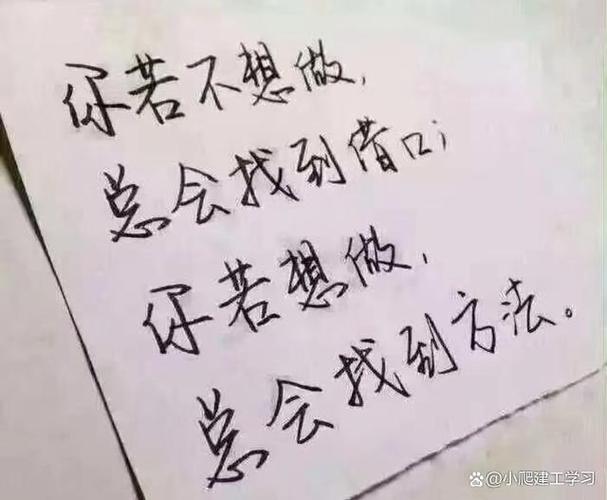 你若不想做,
总会找到借口;
你若想做,
总会找到方法。
@小爬建工学习